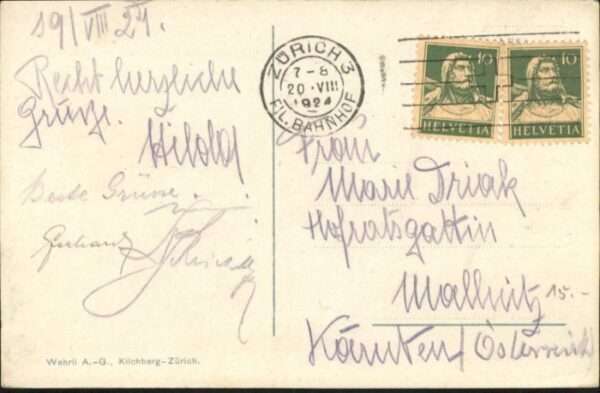 19/VIII.24.
Recht herzliche
Grüsse.
Beste Grüsse.
Gerhard
ZÜRICH 3
7-8
20.VIII
1924
FIL. BAHNHOF
10
HELVETIA
10
HELVETIA
Frau
Marie Driak
Hofratsgattin
Mallnitz
15.-
Kärnten/Österreich
Wehrli A.-G., Kilchberg-Zürich.